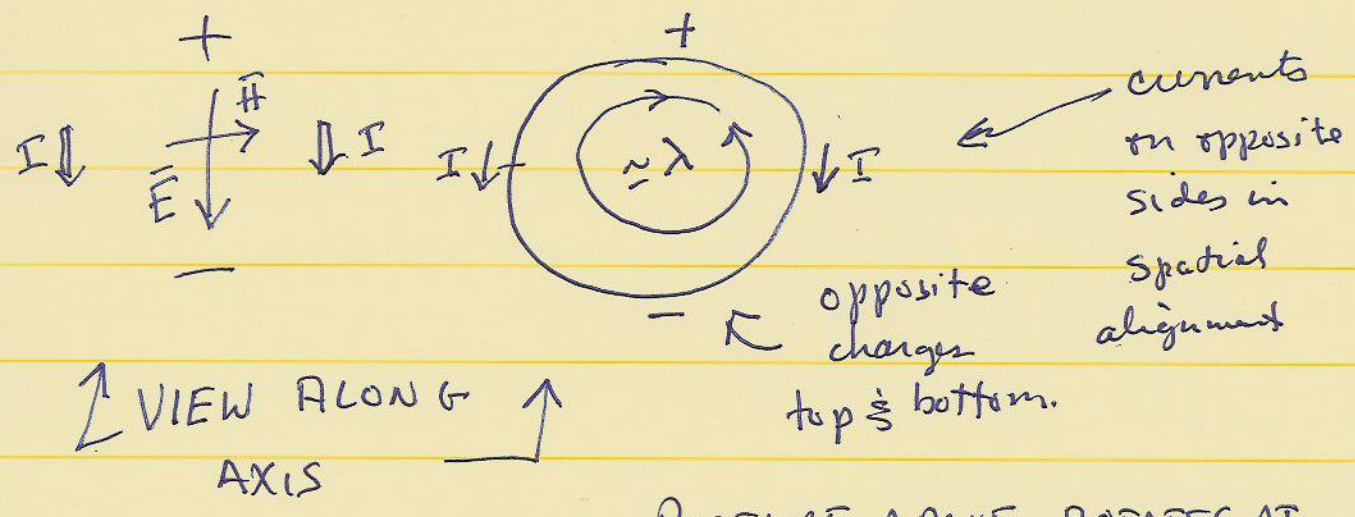 +
H
I
I
E
−
+
I
~ λ
I
−
currents
on opposite
sides in
spatial
alignment
opposite
charges
top & bottom.
VIEW ALONG
AXIS
ABOVE ROTATES AT